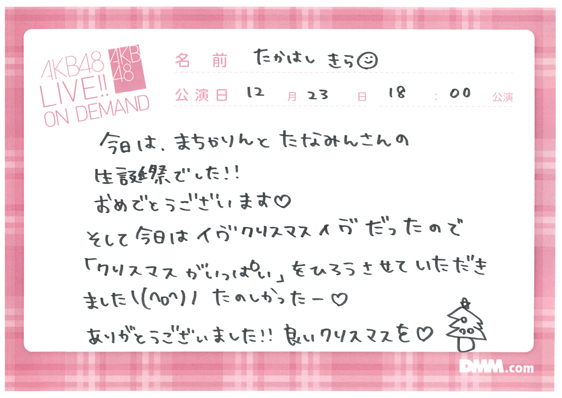 AKB48
LIVE!!
ON DEMAND
AKB
48
名前 たかはし きら
公演日 12 月 23 日 18 : 00 公演
今日は、まちゃりんと たなみんさんの
生誕祭でした!!
おめでとうございます♡
そして今日はイヴクリスマスイヴだったので
「クリスマスがいっぱい」をひろうさせていただき
ました\(^o^)/ たのしかったー♡
ありがとうございました!! 良いクリスマスを♡
DMM.com